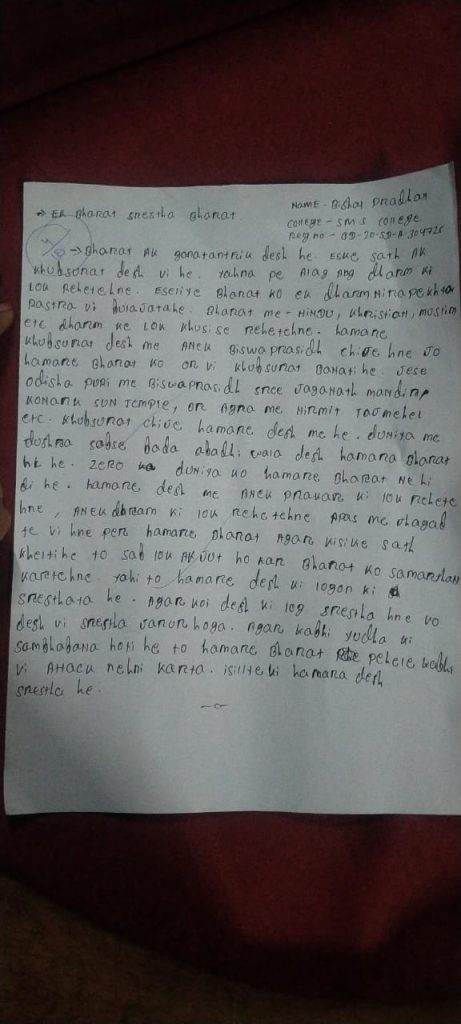 NAME - Bishal Pradhan
→ EK Bharat srestha Bharat
College - SMS College
Reg no -
→ Bharat AK ganatantrik desh he. Eske sath AK
khubsurat desh vi he. Yahna pe Alag Alg dharm ki
lok rehetehne. Eseliye Bharat ko ek dharm Nirapekhta
Rastra vi bulajatahe. Bharat me - HINDU, khristian, muslim
etc dharm ke lok khusise rehetehne. hamare
khubsurat desh me Anek Biswaprasidh chije hne Jo
hamare Bharat ko or vi khubsurat Banatihe. Jese
odisha puri me Biswaprasidh sree Jaganath mandir,
KONARK SUN TEMPLE, or Agra me Nirmit Tajmehel
etc. khubsurat chije hamare desh me he. duniya me
dusra sabse bada abadhi wala desh hamara Bharat
he. ZERO duniya ko hamare Bharat ne hi
di he. hamare desh me Anek prakar ki lok rehete
hne, Anek dhram ki lok rehetehne Apas me jhagad
te vi hne per hamare Bharat Agar kisike sath
kheltihe to sab lok AK JUT ho kar Bharat ko samarthan
karetehne. Yahi to hamare desh ki logon ki
sresthata he. Agar koi desh ki log srestha hne vo
desh vi srestha jarur hoga. Agar kabhi yudha ki
sambhabana hoti he to hamare Bharat pehele kabhi
vi Attack nehni karta. isiliye ki hamara desh
srestha he.